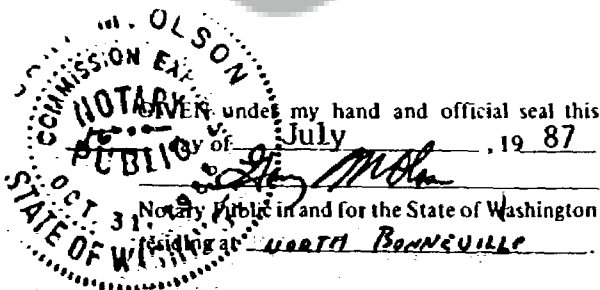 M. OLSON
COMMISSION EXP
NOTARY
PUBLIC
OCT. 31, 198
STATE OF W
GIVEN under my hand and official seal this
day of July , 19 87
Notary Public in and for the State of Washington
residing at NORTH BONNEVILLE .